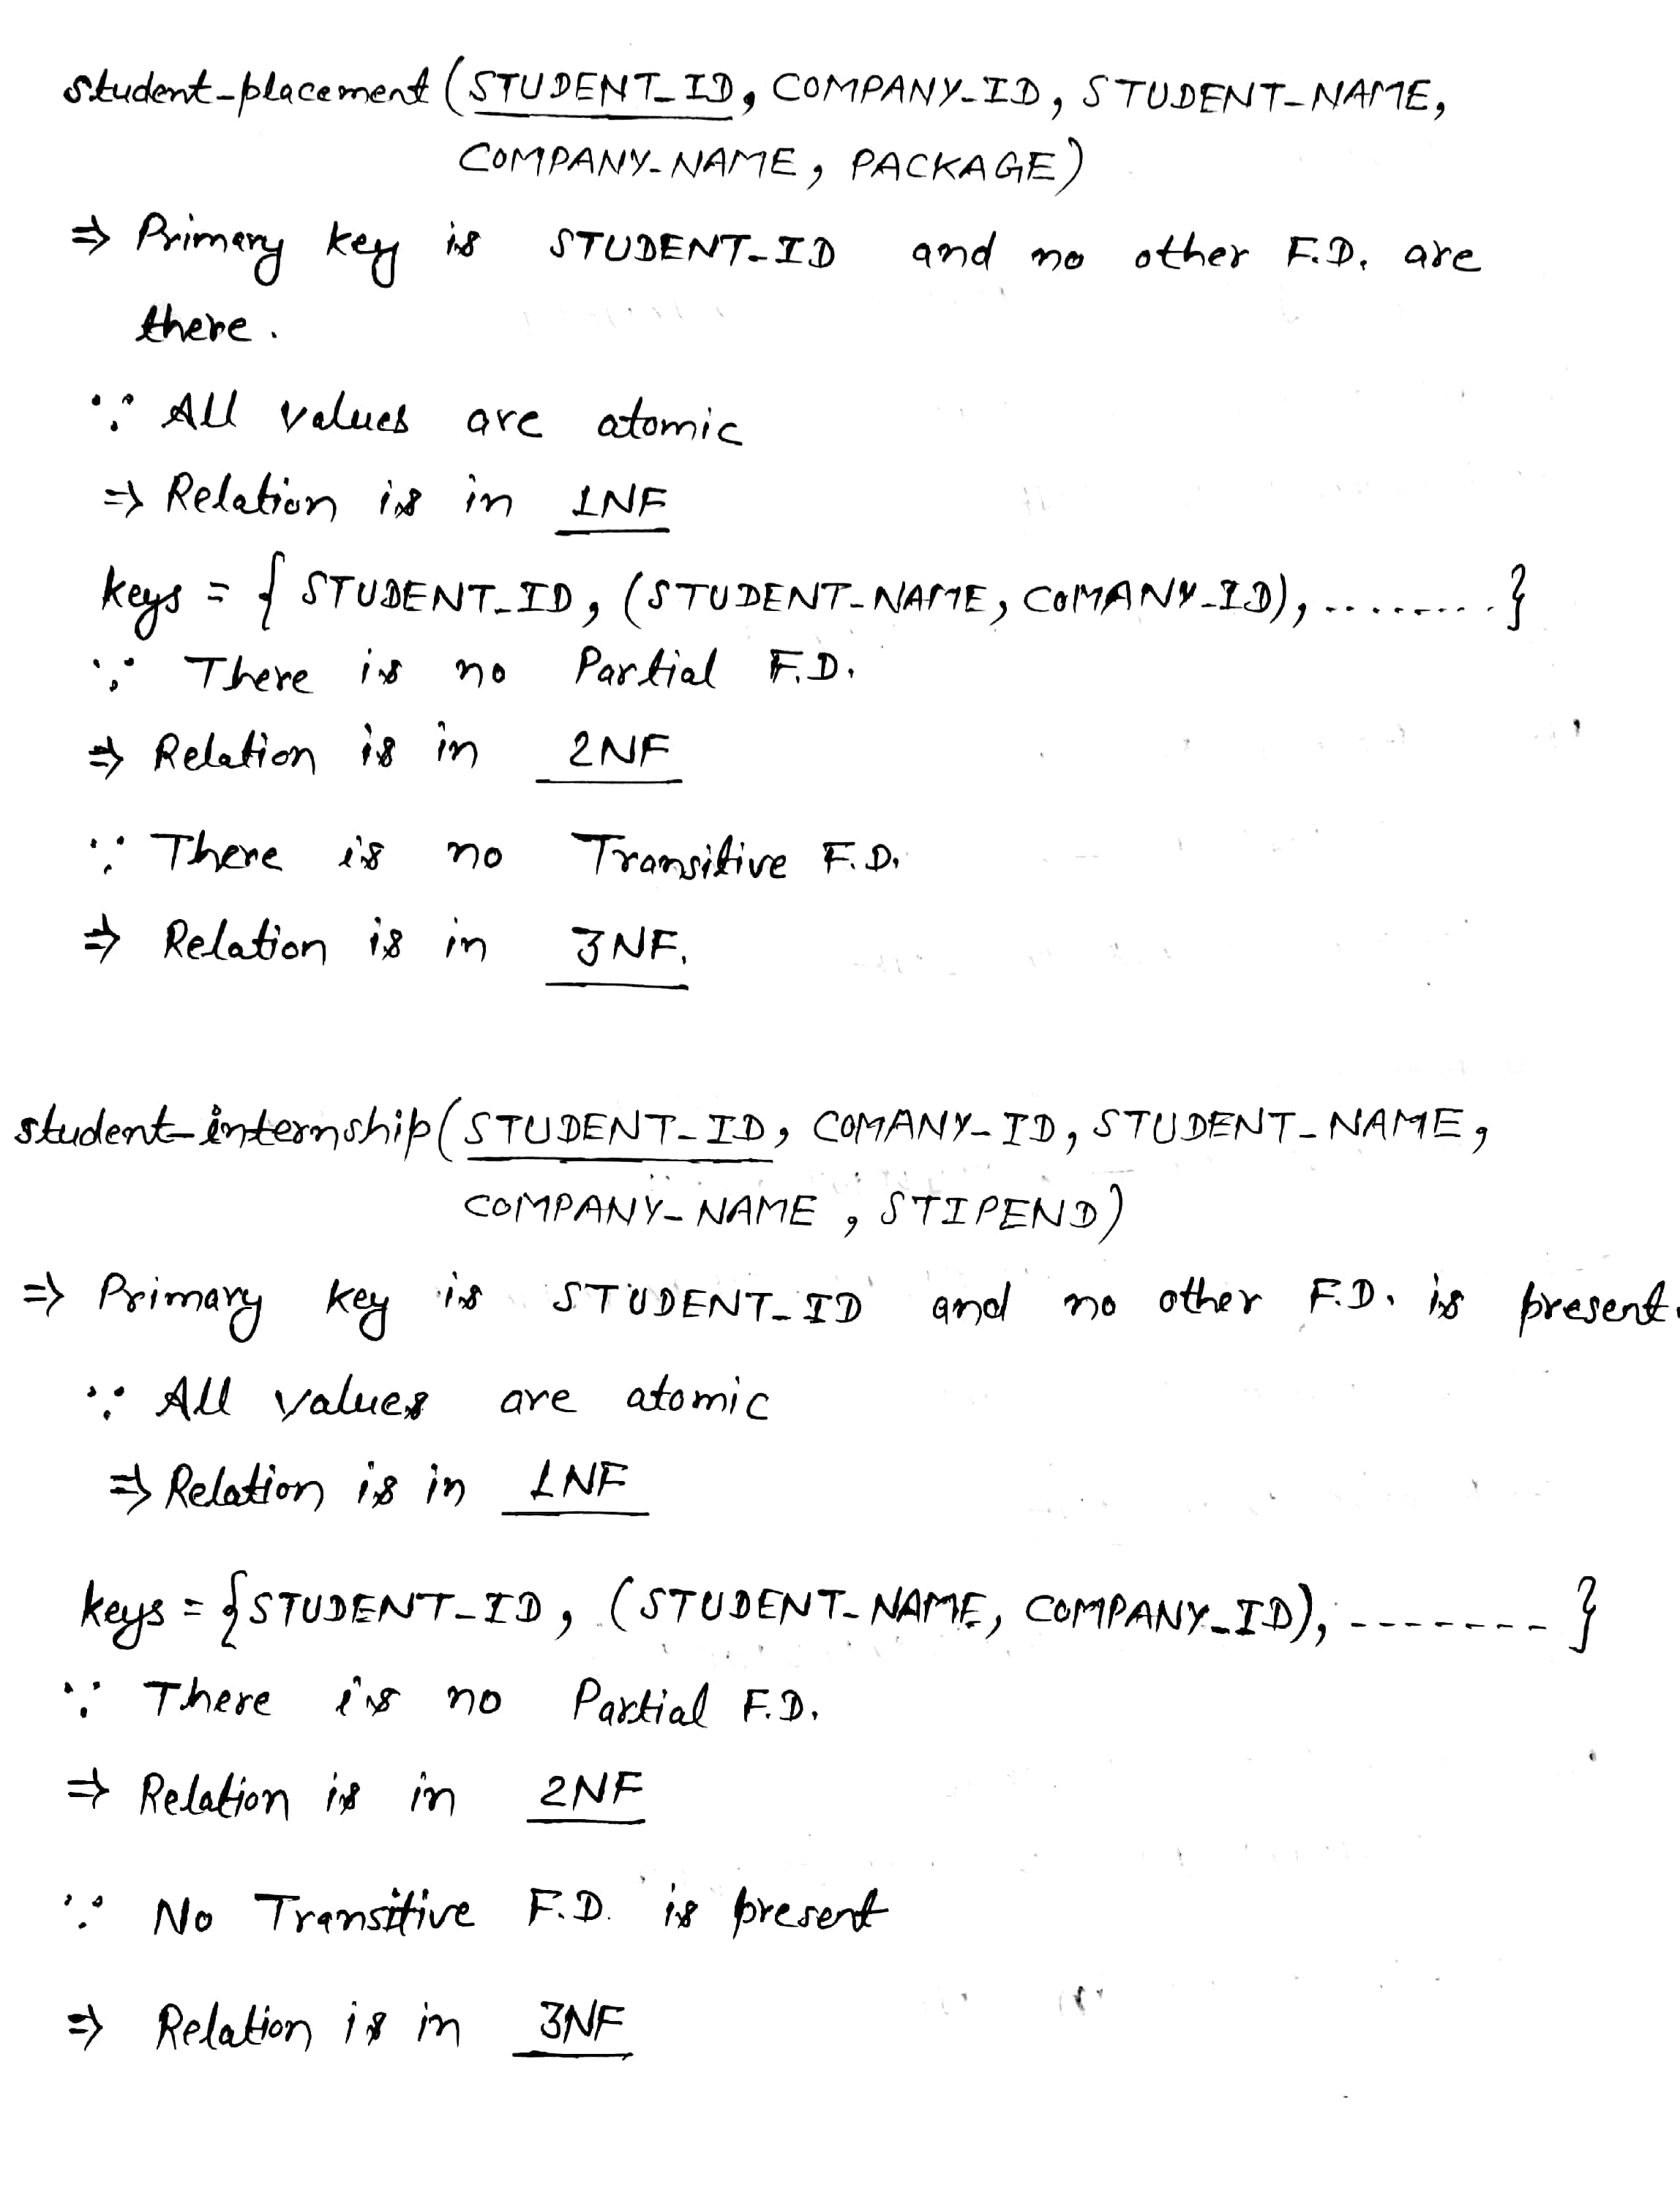 student-placement (STUDENT_ID, COMPANY-ID, STUDENT-NAME,
COMPANY-NAME, PACKAGE)
⇒ Primary key is STUDENT-ID and no other F.D. are
there.
∵ All values are atomic
⇒ Relation is in 1NF
keys = { STUDENT_ID, (STUDENT-NAME, COMANY-ID), ........ }
∵ There is no Partial F.D.
⇒ Relation is in 2NF
∵ There is no Transitive F.D.
⇒ Relation is in 3NF.
student-internship (STUDENT-ID, COMANY-ID, STUDENT-NAME,
COMPANY-NAME, STIPEND)
⇒ Primary key is STUDENT-ID and no other F.D. is present.
∵ All values are atomic
⇒ Relation is in 1NF
keys = {STUDENT-ID, (STUDENT-NAME, COMPANY_ID), ------- }
∵ There is no Partial F.D.
⇒ Relation is in 2NF
∵ No Transitive F.D. is present
⇒ Relation is in 3NF